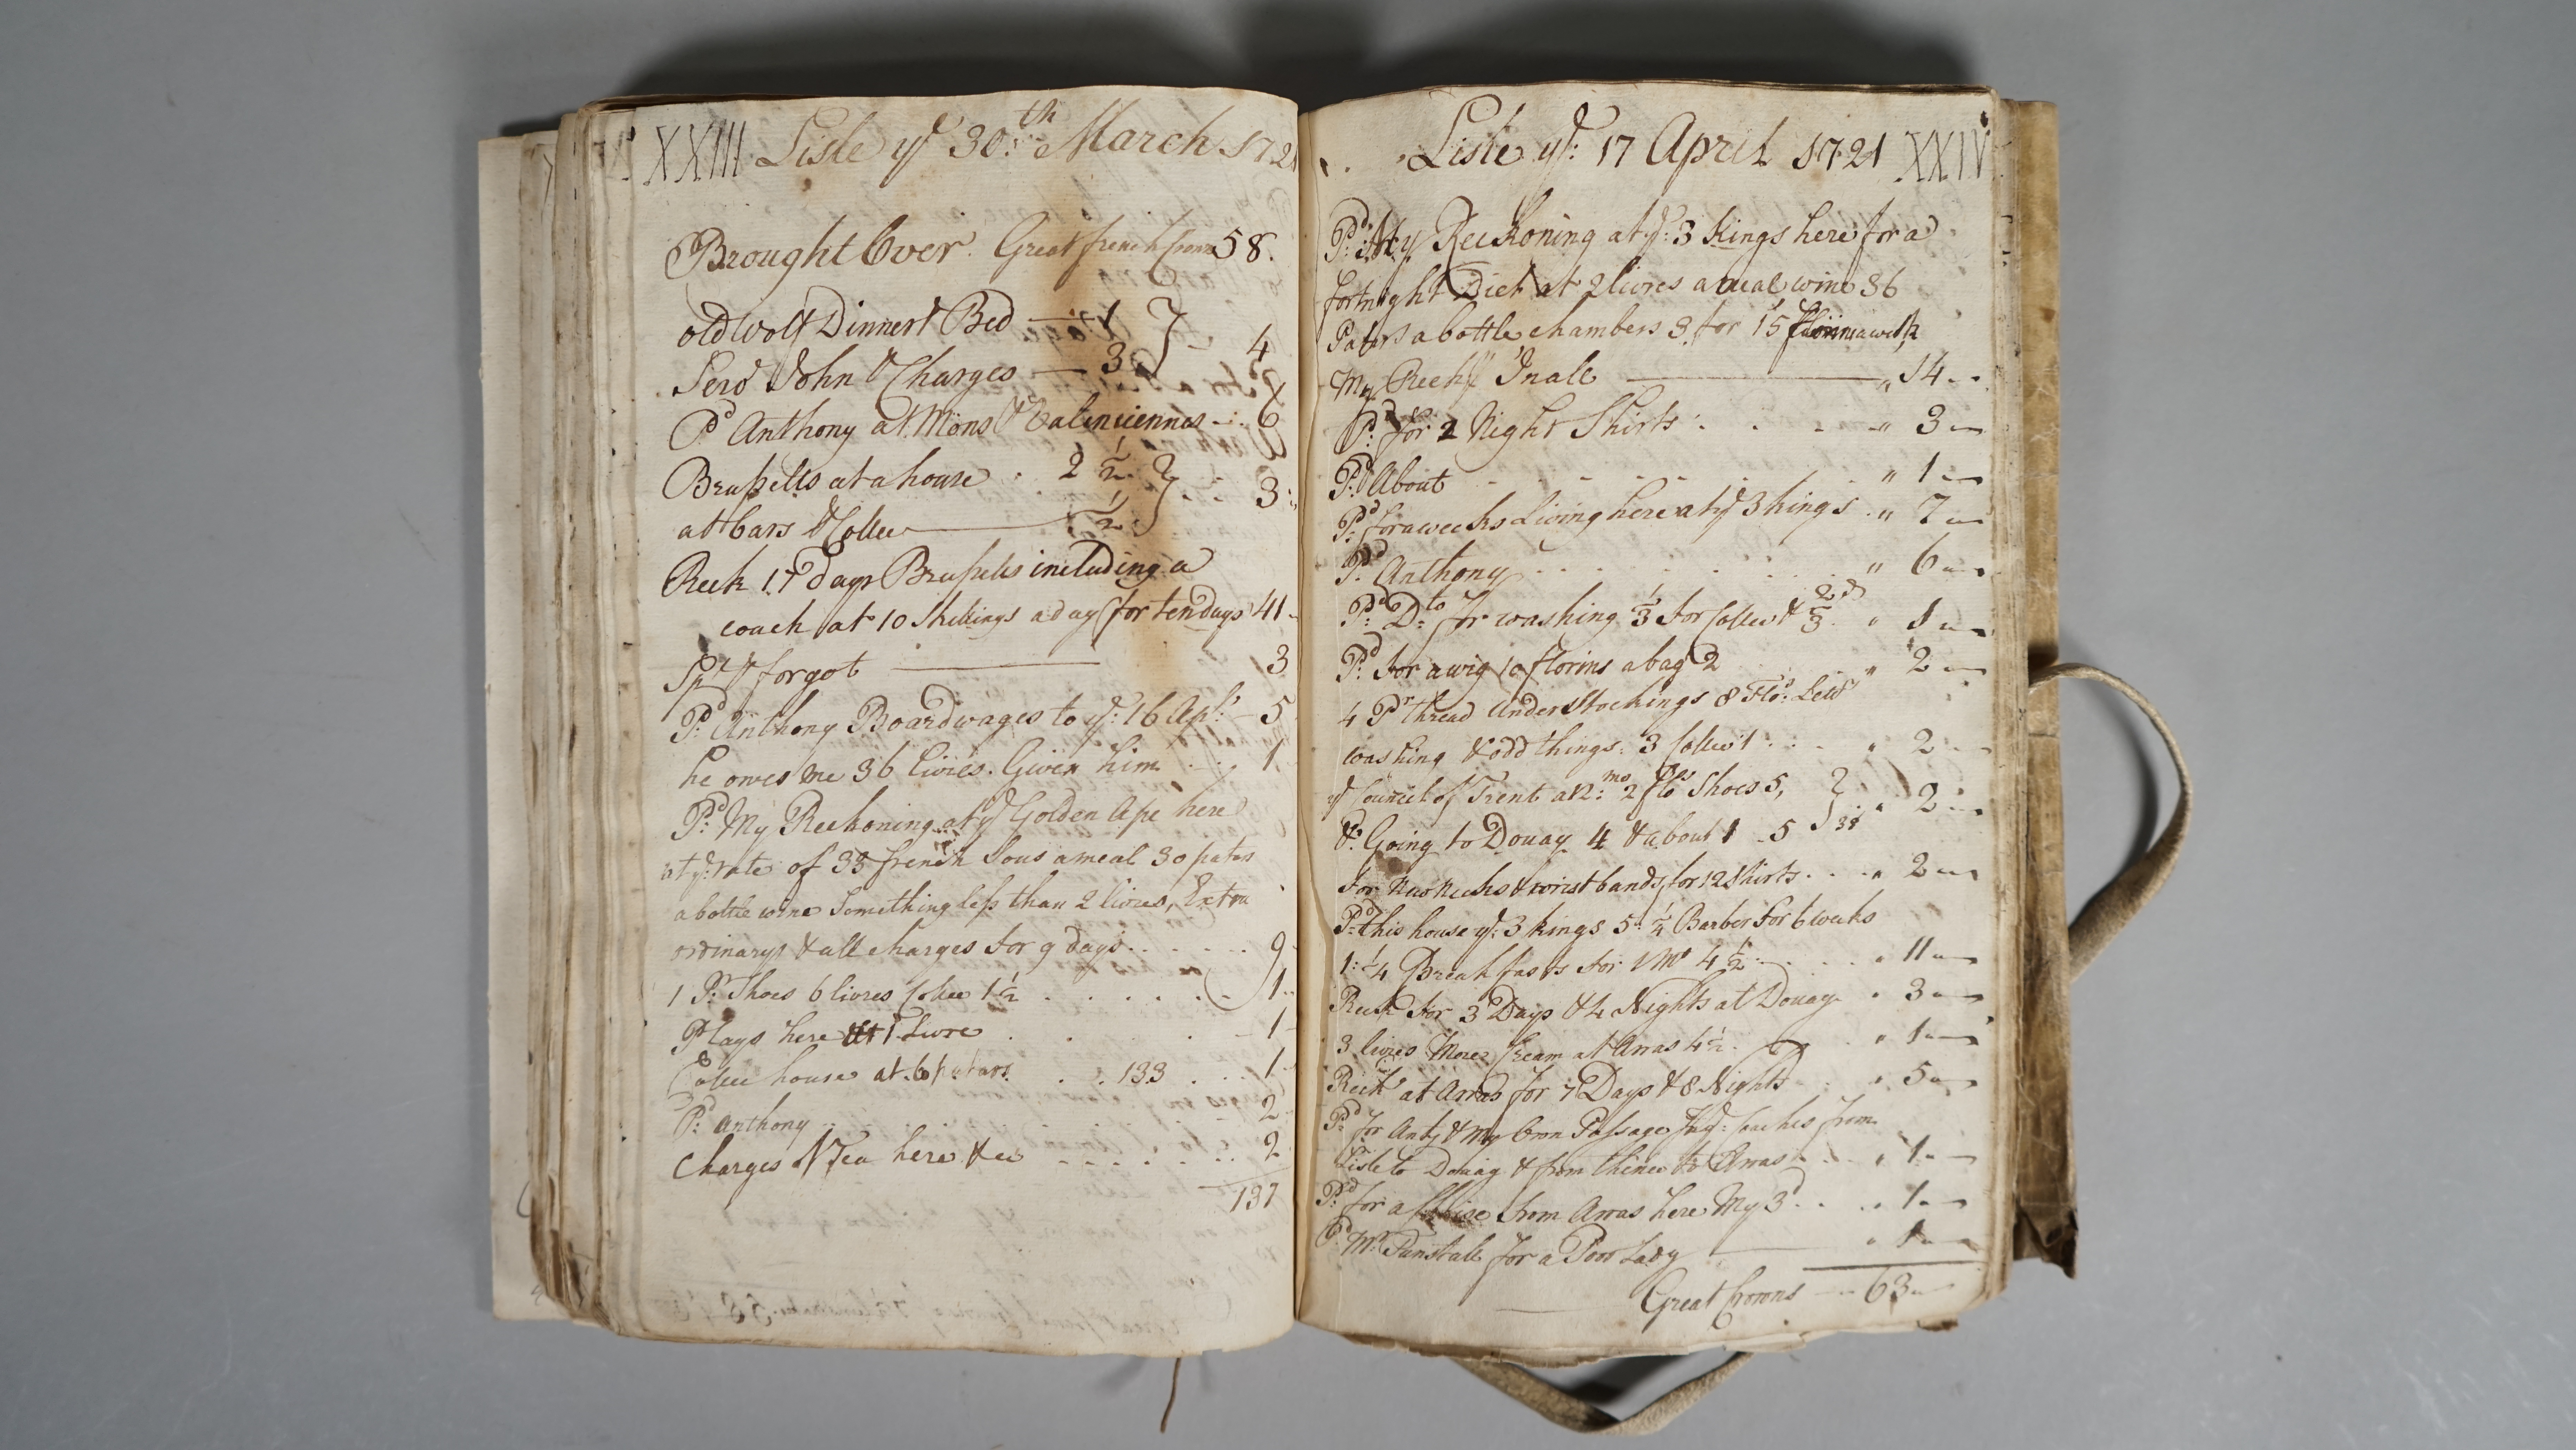 XXIII Lisle ye 30:th March 1721
Brought Over. Great french Crowns 58.
old Wolf Dinner & Bed — 1
4
Serv John & Charges — 3
Pd Anthony at Mons & Valenciennes - . 6
Brussells at a house . 2 1/2
3
at Cars & Coffee 1/2
Reck 17 days Brussels including a
coach at 10 Skillings a day for ten days 41
Spt & forgot 3
Pd: Anthony Boardwages to ye: 16 Apl: 5
he owes me 36 livres. Given him 1
Pd: My Reckoning at ye Golden Ape here
at ye: rate of 33 french Sous a meal 30 patars
a bottle wine Something less than 2 livres, Extra
ordinarys & all charges for 9 days . . . . 9
1 Pr: Shoes 6 livres Coffee 1 1/2 . . . . . 1
Plays here at 1 Livre . . . 1
Coffee house at 6 patars . . 133 . . . 1
Pd: Anthony . . . . 2
Charges Tea here &c . . . . . 2
137
Lisle ye: 17 April 1721 XXIV
Pd: My Reckoning at ye: 3 Kings here for a
fortnight Diet at 2 livres a meal wine 36
Patars a bottle chambers 3 for 15 florins a week
My Reckg In all — " 14
Pd: for 2 Night Shirts : . . . " 3
Pd: About " 1
Pd: for a weeks Living here at ye 3 kings . " 7
Pd: Anthony . . . . . " 6
Pd: Dto for washing 1/3 for Coffee & 2/3d " 1
Pd: for a wig 10 florins a bag 2 " 2
4 Pr thread Understockings 8 Flo:
washing & odd things: 3 Coffee 1 . . . " 2
ye Council of Trent 2 flos Shoes 5,
" 2
&: Going to Douay 4 & about 1 - 5
for New Necks & wrist bands for 12 Shirts . . . " 2
Pd: this house ye: 3 kings 5: 1/4 Barber for 6 weeks
1: 1/4 Breakfasts for 4 1/2 . . . . . " 11
Reck for 3 Days & 4 Nights at Douay " 3
3 livres More Cream at Arras 4 1/2 . . " 1
Reck at Arras for 7 Days & 8 Nights " 5
Pd: for Anty & My Own Passage Coaches from
Lisle to Douay & from thence to Arras . . . " 1
Pd: for a Chaise from Arras here My 3d . . . " 1
Pd Mr: Tunstall for a Poor Lady — " 1
Great Crowns — 63